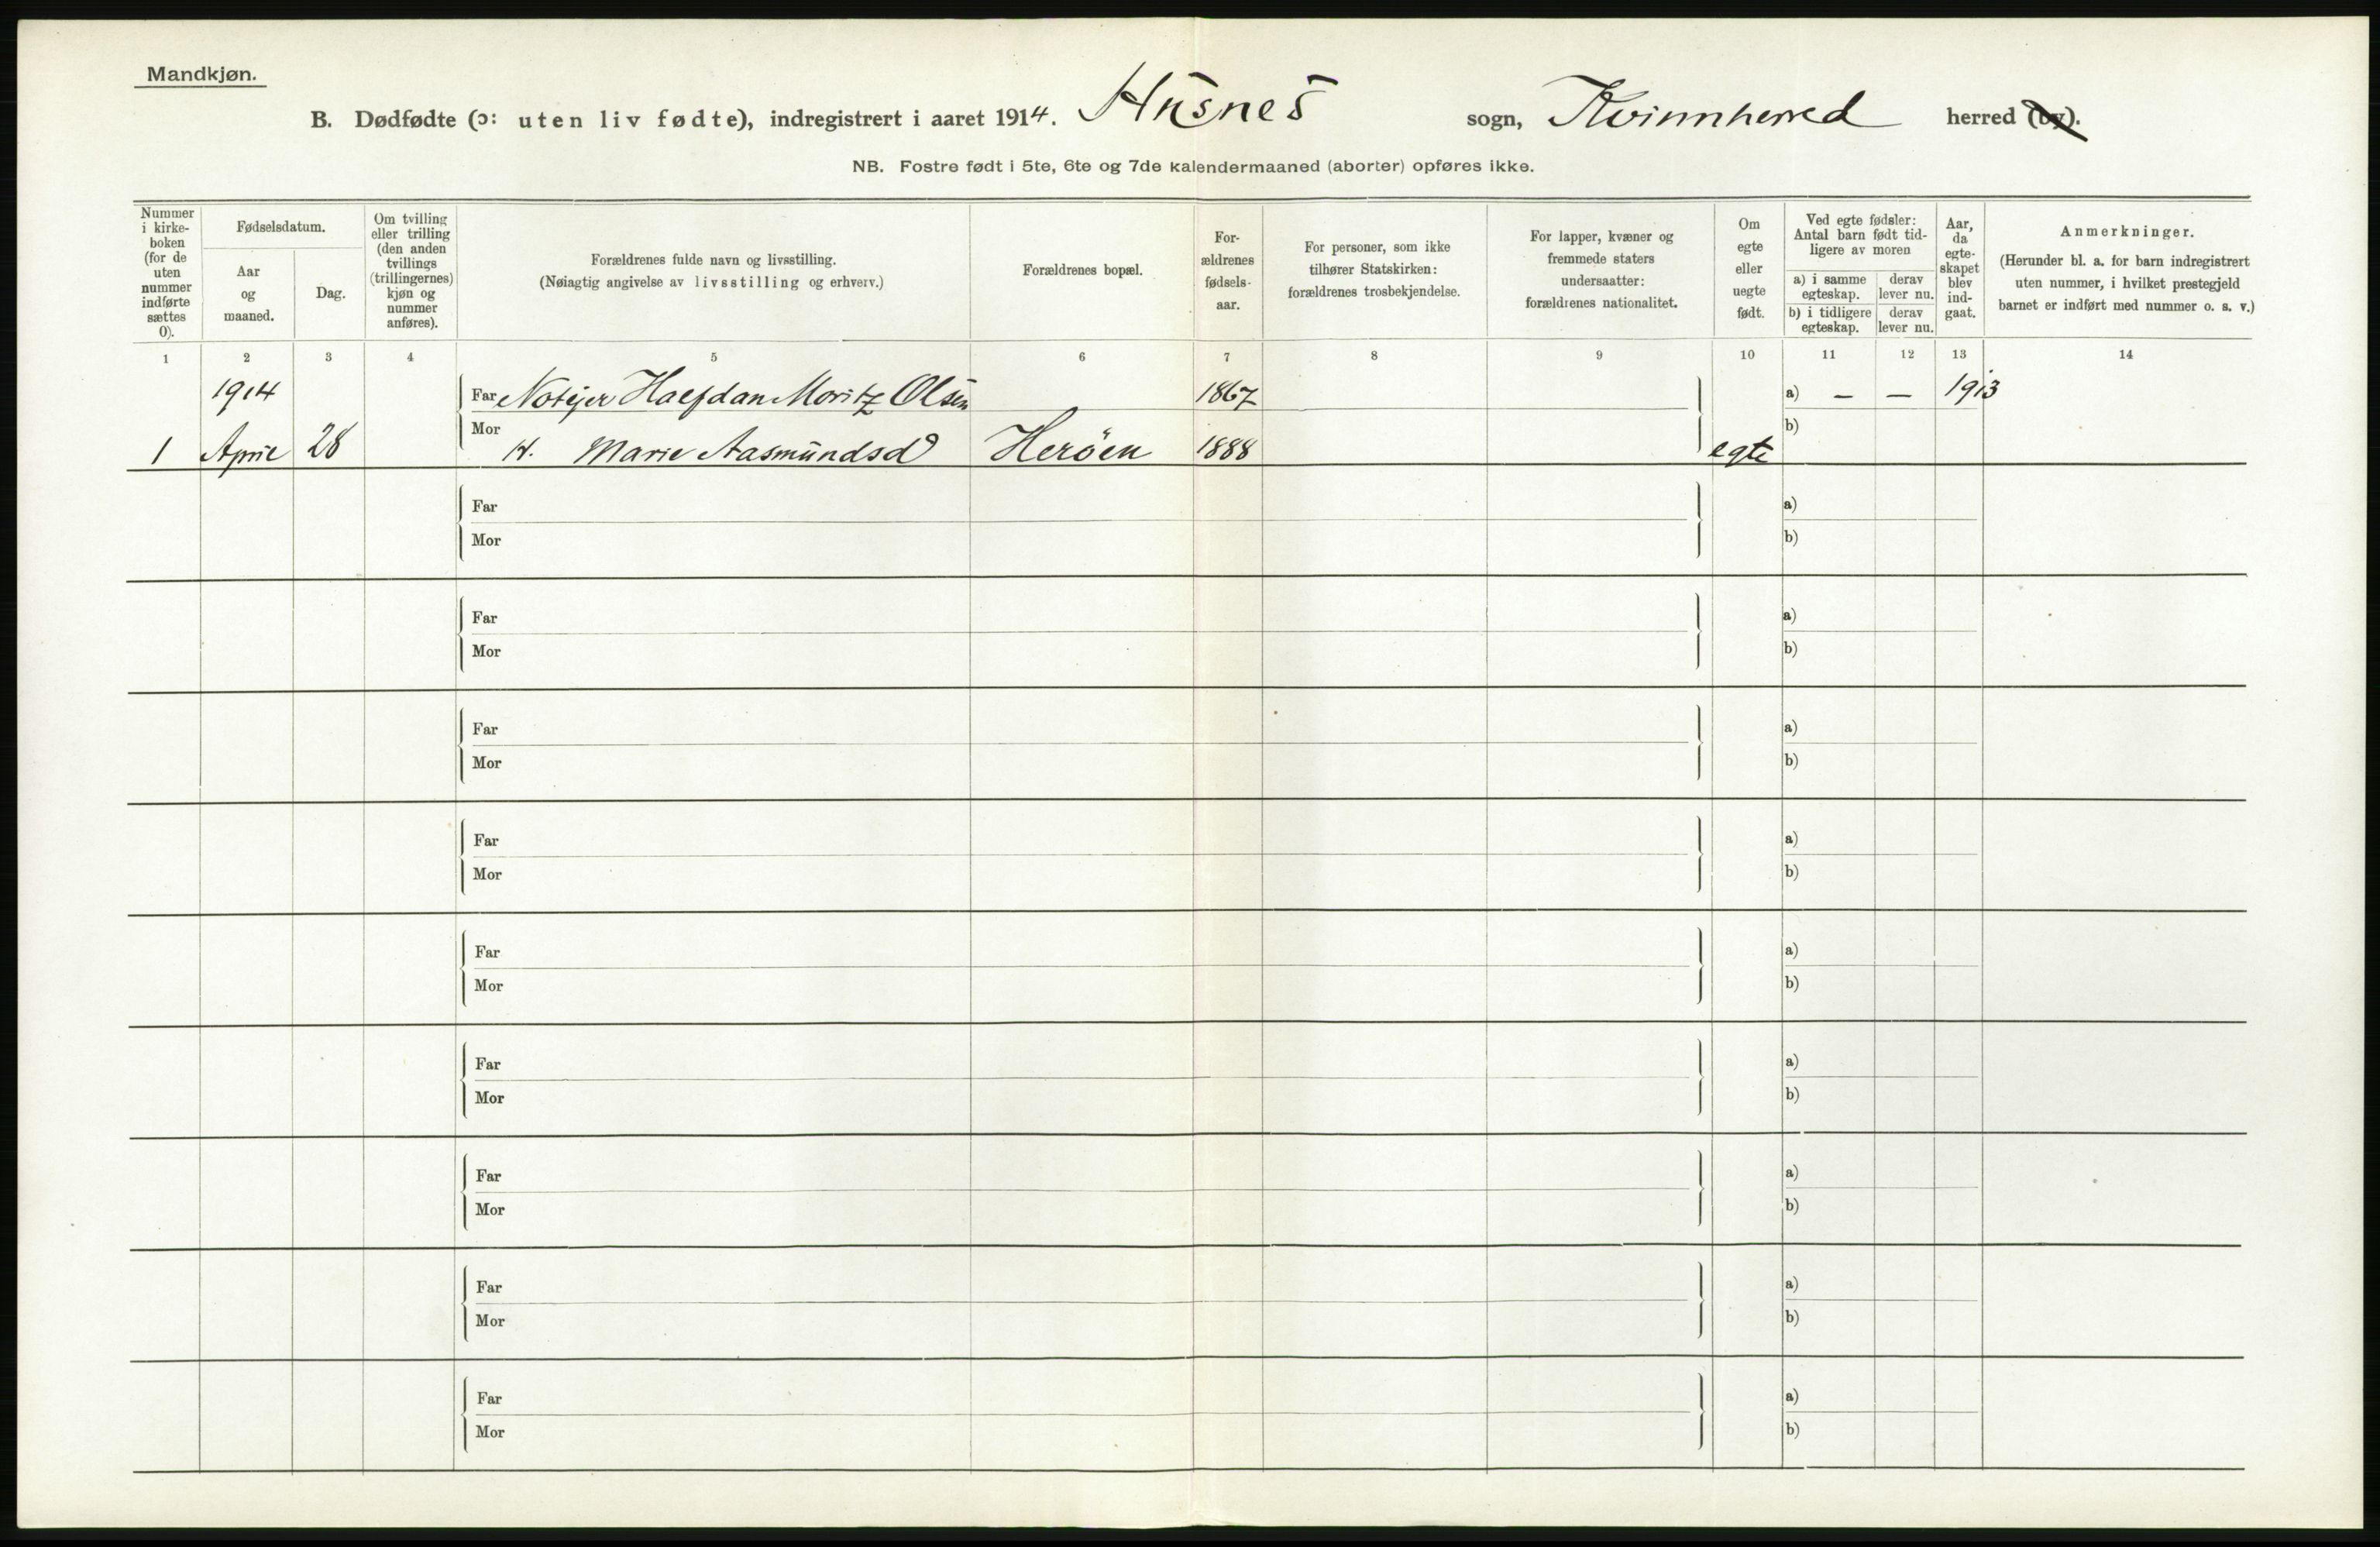 Mandkjøn.
B. Dødfødte (ɔ: uten liv fødte), indregistrert i aaret 1914. Husnes sogn, Kvinnherred herred (by).
NB. Fostre født i 5te, 6te og 7de kalendermaaned (aborter) opføres ikke.
Nummer i kirke-boken (for de uten nummer indførte sættes 0).
Fødselsdatum.
Aar og maaned.
Dag.
Om tvilling eller trilling (den anden tvillings (trillingernes) kjøn og nummer anføres).
Forældrenes fulde navn og livsstilling.
(Nøiagtig angivelse av livsstilling og erhverv.)
Forældrenes bopæl.
For-ældrenes fødsels-aar.
For personer, som ikke tilhører Statskirken: forældrenes trosbekjendelse.
For lapper, kvæner og fremmede staters undersaatter: forældrenes nationalitet.
Om egte eller uegte født.
Ved egte fødsler: Antal barn født tid-ligere av moren
a) i samme egteskap.
derav lever nu.
b) i tidligere egteskap.
derav lever nu.
Aar, da egte-skapet blev ind-gaat.
Anmerkninger.
(Herunder bl. a. for barn indregistrert uten nummer, i hvilket prestegjeld barnet er indført med nummer o. s. v.)
1 2 3 4 5 6 7 8 9 10 11 12 13 14
1914 Far Notejer Halfdan Moritz Olsen 1867 a) — — 1913
Mor b)
1 April 28 H. Marie Aasmundsd Herøen 1888 egte
Far a)
Mor b)
Far a)
Mor b)
Far a)
Mor b)
Far a)
Mor b)
Far a)
Mor b)
Far a)
Mor b)
Far a)
Mor b)
Far a)
Mor b)
Far a)
Mor b)